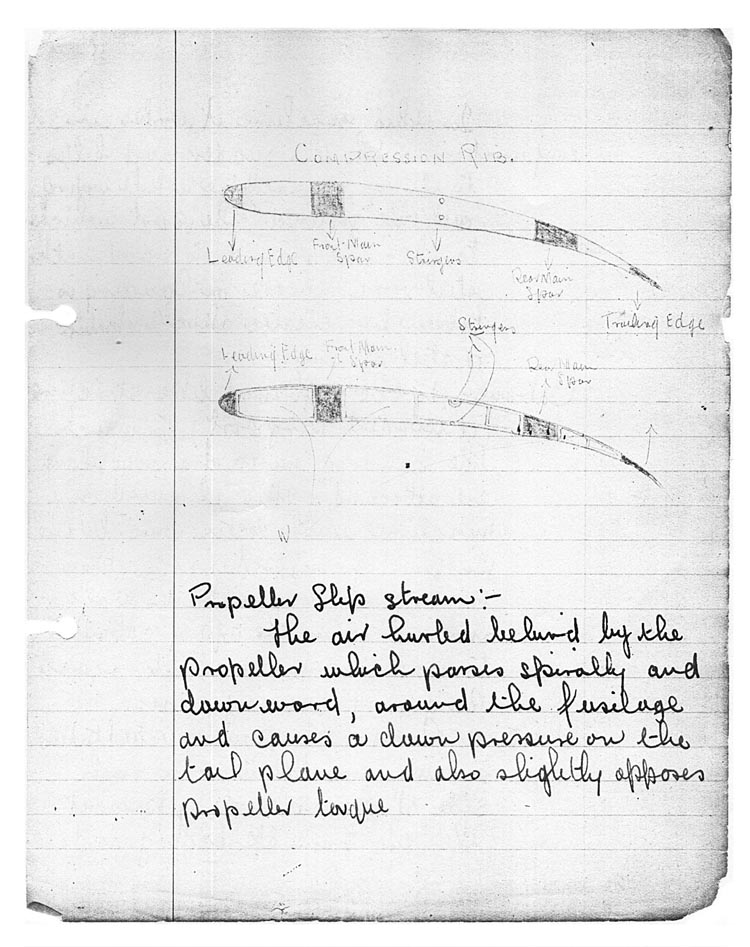 COMPRESSION RIB.
Leading Edge
Front Main
Spar
Stringers
Rear Main
Spar
Trailing Edge
Stringers
Leading Edge
Front Main
Spar
Rear Main
Spar
Propeller Slip stream:-
the air hurled behind by the
propeller which passes spirally and
downward, around the fusilage
and causes a down pressure on the
tail plane and also slightly opposes
propeller torque